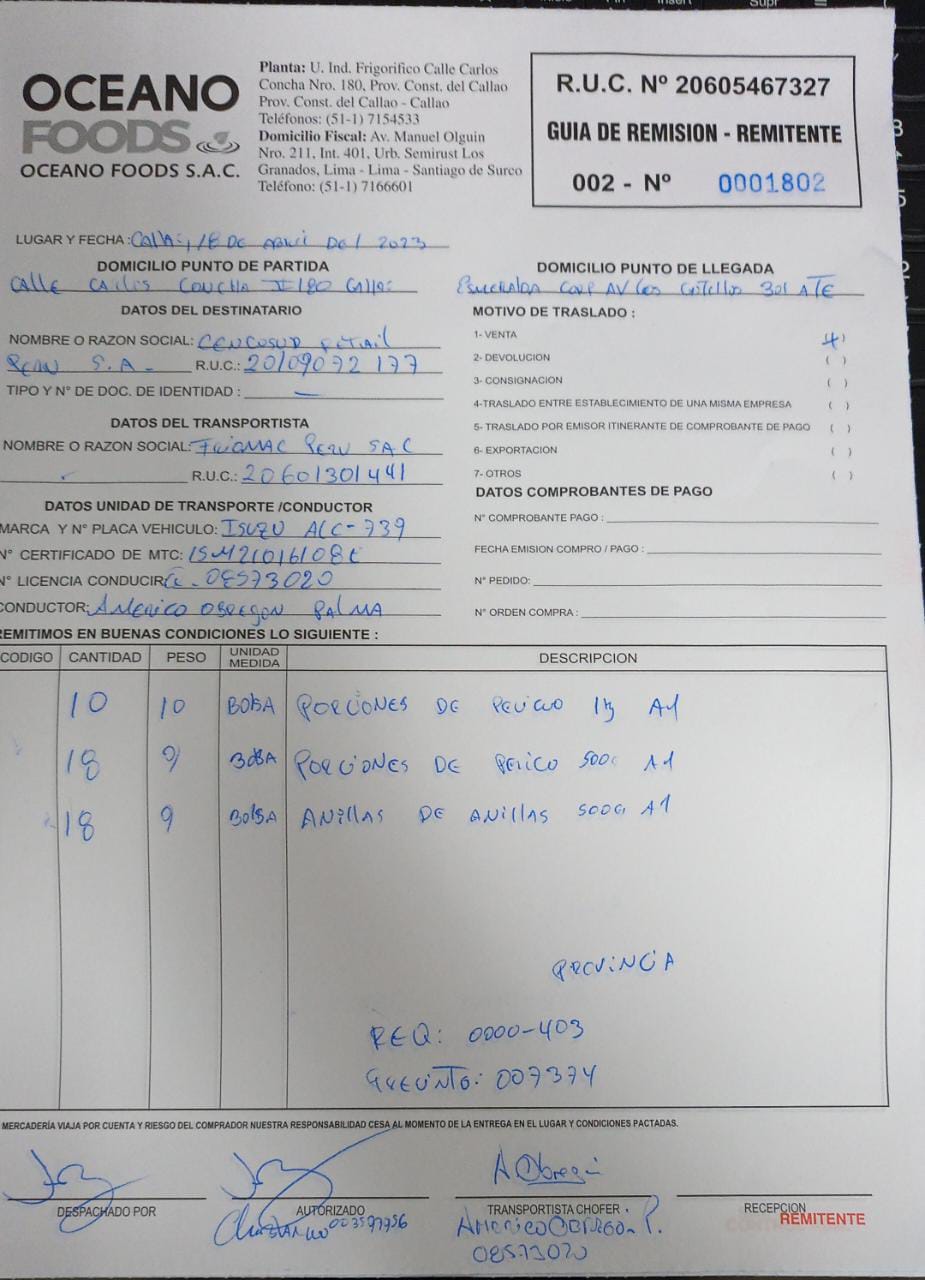 OCEANO
FOODS
OCEANO FOODS S.A.C.
Planta: U. Ind. Frigorifico Calle Carlos
Concha Nro. 180, Prov. Const. del Callao
Prov. Const. del Callao - Callao
Teléfonos: (51-1) 7154533
Domicilio Fiscal: Av. Manuel Olguin
Nro. 211, Int. 401, Urb. Semirust Los
Granados, Lima - Lima - Santiago de Surco
Teléfono: (51-1) 7166601
R.U.C. Nº 20605467327
GUIA DE REMISION - REMITENTE
002 - Nº 0001802
LUGAR Y FECHA: Callao, 18 DE ABRIL DEL 2023
DOMICILIO PUNTO DE PARTIDA
CALLE CARLOS CONCHA 180 CALLAO
DOMICILIO PUNTO DE LLEGADA
ESMERALDA CORP AV LOS 301 ATE
DATOS DEL DESTINATARIO
NOMBRE O RAZON SOCIAL: CENCOSUD RETAIL
PERU S.A. R.U.C.: 20109072177
TIPO Y N° DE DOC. DE IDENTIDAD : —
MOTIVO DE TRASLADO :
1- VENTA
2- DEVOLUCION ( )
3- CONSIGNACION ( )
4-TRASLADO ENTRE ESTABLECIMIENTO DE UNA MISMA EMPRESA ( )
5- TRASLADO POR EMISOR ITINERANTE DE COMPROBANTE DE PAGO ( )
6- EXPORTACION ( )
7- OTROS ( )
DATOS DEL TRANSPORTISTA
NOMBRE O RAZON SOCIAL: FRIOMAC PERU SAC
R.U.C.: 20601301441
DATOS COMPROBANTES DE PAGO
N° COMPROBANTE PAGO :
FECHA EMISION COMPRO / PAGO :
N° PEDIDO:
N° ORDEN COMPRA :
DATOS UNIDAD DE TRANSPORTE /CONDUCTOR
MARCA Y N° PLACA VEHICULO: ISUZU ALC-739
N° CERTIFICADO DE MTC:
N° LICENCIA CONDUCIR: 08573020
CONDUCTOR: AMERICO OBREGON PALMA
REMITIMOS EN BUENAS CONDICIONES LO SIGUIENTE :
CODIGO CANTIDAD PESO UNIDAD MEDIDA DESCRIPCION
10 10 BOLSA PORCIONES DE PERICO 1kg A1
18 9 BOLSA PORCIONES DE PERICO 500G A1
18 9 BOLSA ANILLAS DE ANILLAS 500G A1
PROVINCIA
REQ: 0000-403
007374
MERCADERÍA VIAJA POR CUENTA Y RIESGO DEL COMPRADOR NUESTRA RESPONSABILIDAD CESA AL MOMENTO DE LA ENTREGA EN EL LUGAR Y CONDICIONES PACTADAS.
A Obregon
DESPACHADO POR
AUTORIZADO
003597956
TRANSPORTISTA CHOFER
AMERICO OBREGON P.
08573020
RECEPCION
REMITENTE